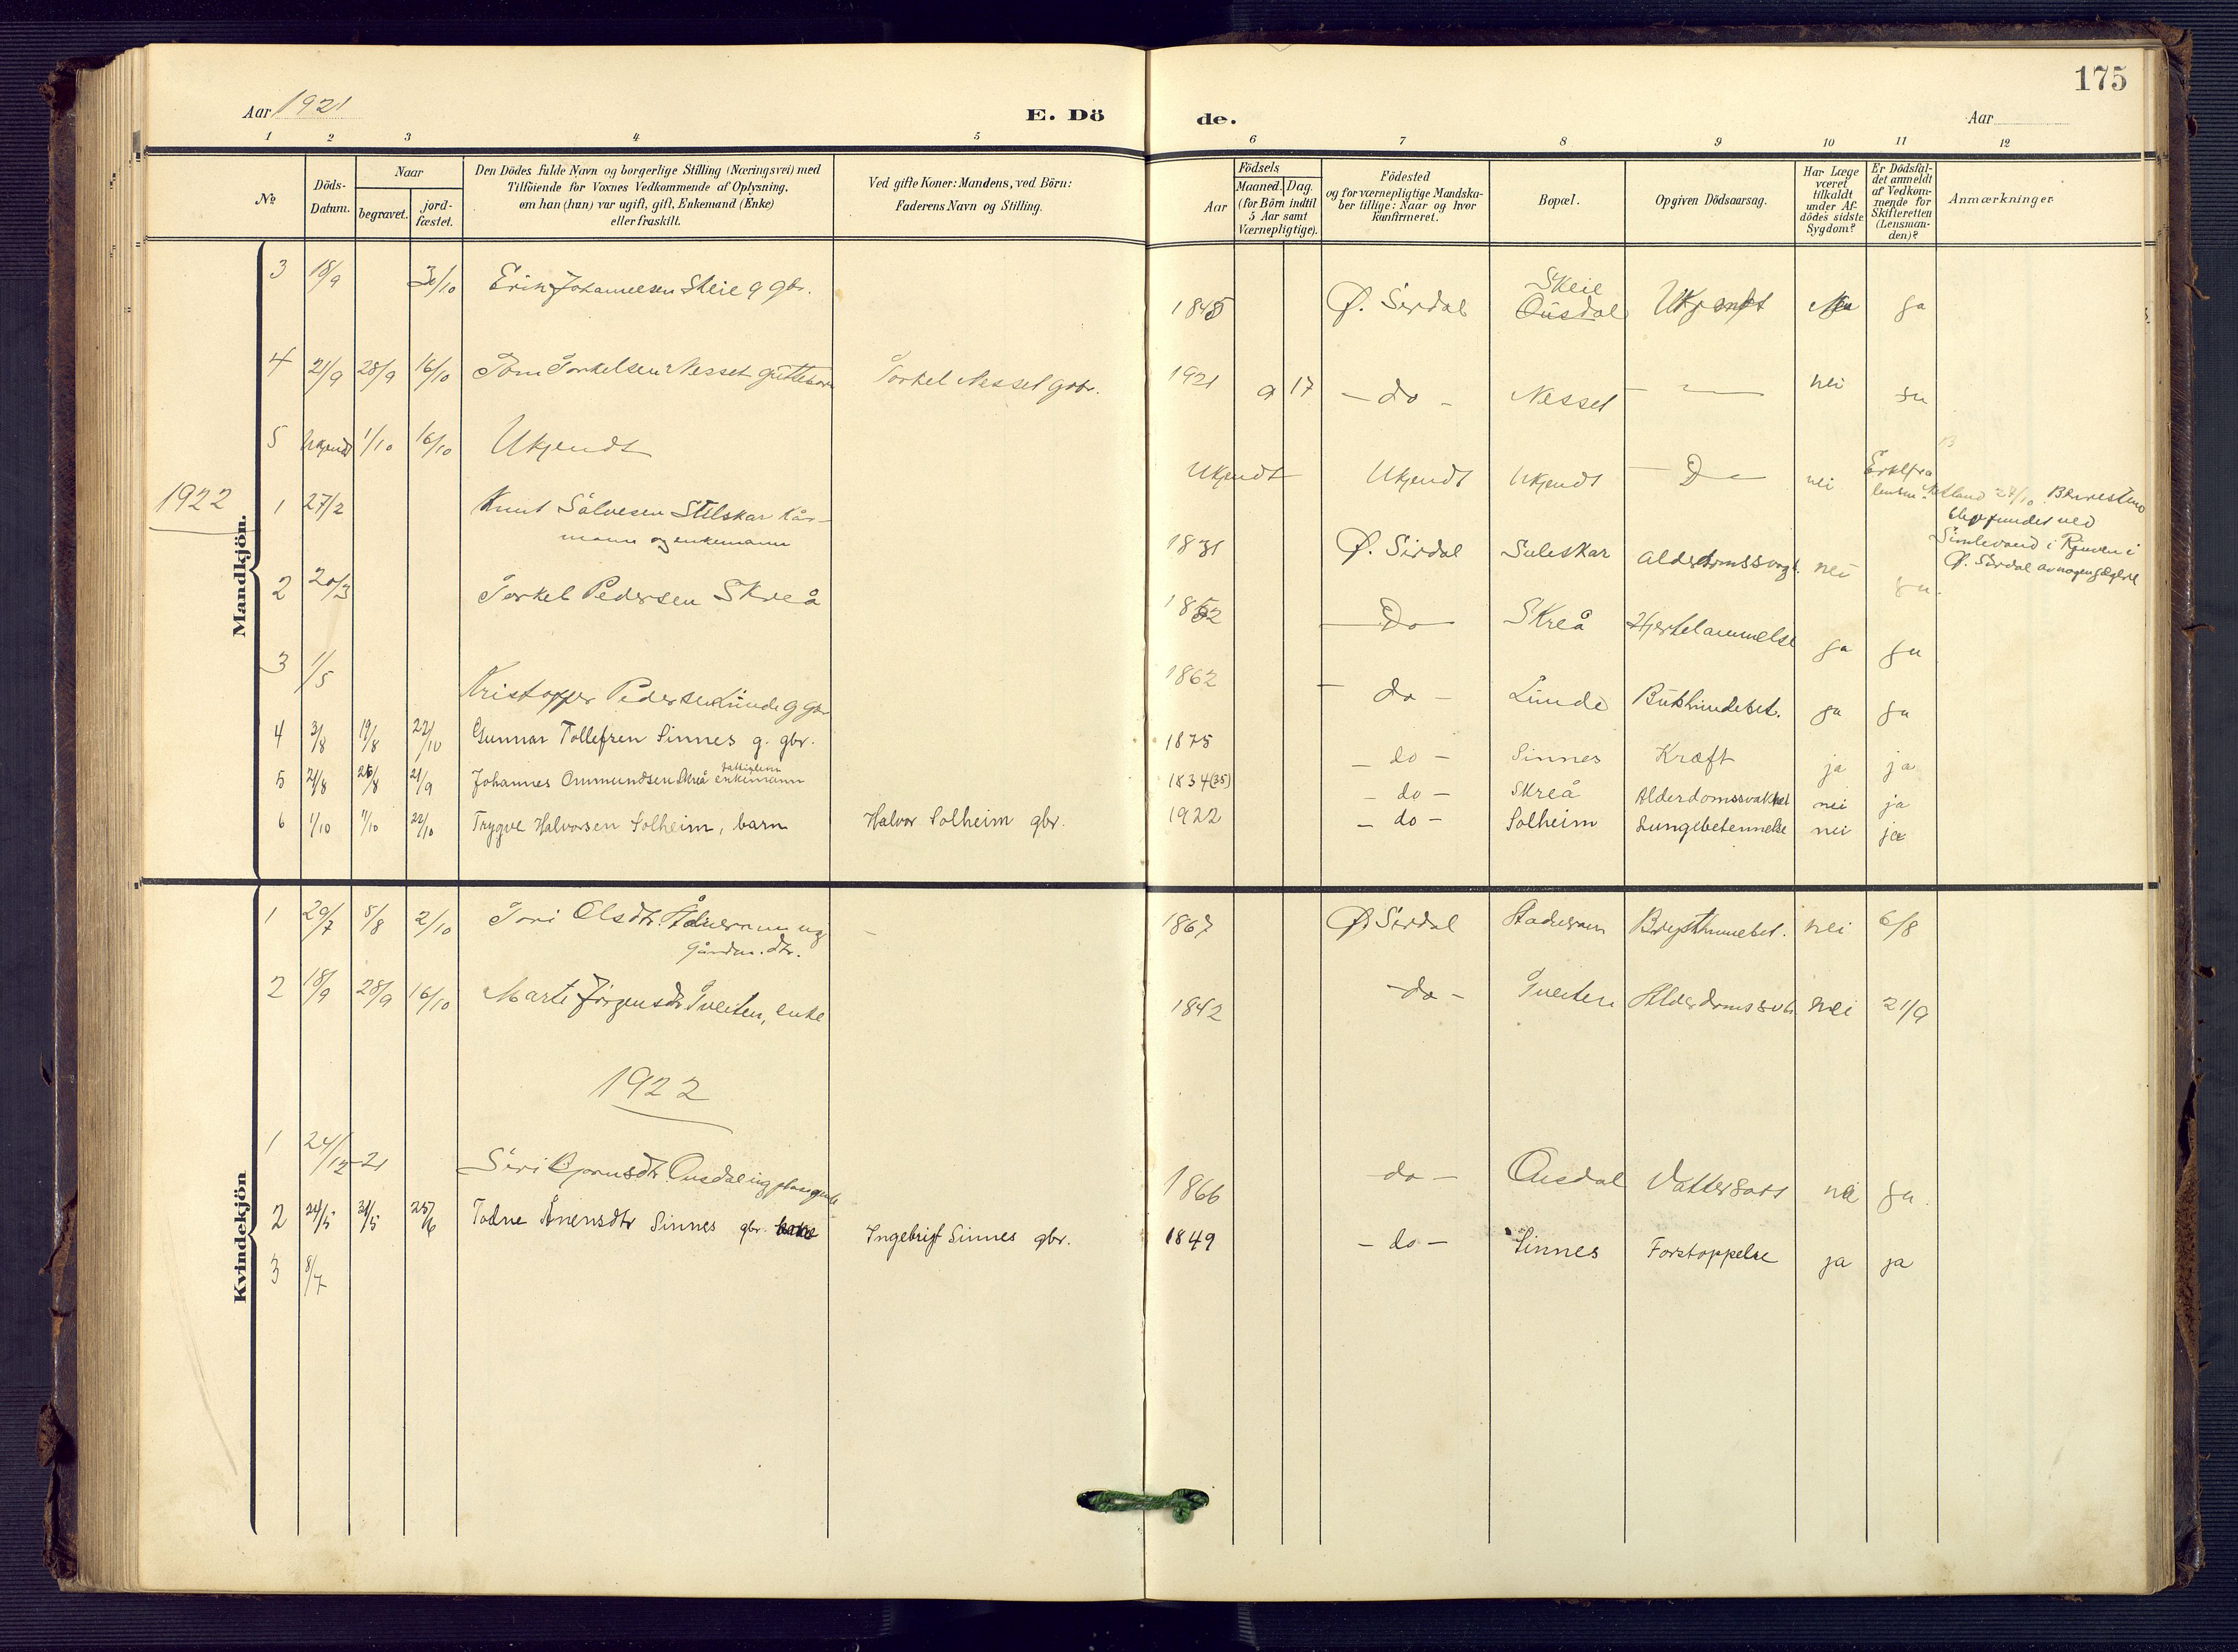 175
Aar 1921
E. Dö de.
Aar
1 2 3 4 5 6 7 8 9 10 11 12
No
Döds-
Datum.
Naar
begravet.
jord-
fæstet.
Den Dödes fulde Navn og borgerlige Stilling (Næringsvei) med
Tilföiende for Voxnes Vedkommende af Oplysning,
om han (hun) var ugift, gift, Enkemand (Enke)
eller fraskilt.
Ved gifte Koner: Mandens, ved Börn:
Faderens Navn og Stilling.
Födsels
Aar
Maaned. Dag.
(for Börn indtil
5 Aar samt
Værnepligtige).
Födested
og for værnepligtige Mandska-
ber tillige: Naar og hvor
konfirmeret.
Bopæl.
Opgiven Dödsaarsag.
Har Læge
været
tilkaldt
under Af-
dödes sidste
Sygdom?
Er Dödsfal-
det anmeldt
af Vedkom-
mende for
Skifteretten
(Lensman-
den)?
Anmærkninger.
Mandkjön.
3 18/9 Erik Johannesen Skeie g gbr. 1845 Ö. Sirdal Skeie Ousdal Ukjendt ja
4 21/9 28/9 16/10 Torkelsen Nesset guttebarn Torkel Nesset gbr. 1921 9 17 - do - Nesset nei ja
5 Ukjendt 1/10 16/10 Ukjendt Ukjendt Ukjendt Ukjendt Do nei
1922
1 27/2 Knut Sålvesen Suleskar kår-
mann og enkemann 1831 Ö. Sirdal Suleskar Alderdomssvagh. nei ja
2 20/3 Torkel Pedersen Skreå 1852 Do Skreå Hjertelammelse ja ja
3 1/5 Kristoffer Pedersen Lunde g gbr 1862 - do - Lunde Bukhindebet. ja ja
4 3/8 19/8 22/10 Gunnar Tollefsen Sinnes g. gbr. 1875 - do - Sinnes Kræft ja ja
5 21/8 26/8 21/9 Johannes Ommundsen Skreå enkemann 1834(35) - do - Skreå Alderdomssvakhet nei ja
6 1/10 11/10 22/10 Trygve Halvorsen Solheim, barn Halvor Solheim gbr. 1922 - do - Solheim Lungebetennelse nei ja
Kvindekjön
1 29/7 5/8 2/10 Tori Olsdtr. Ådneram ug
gårdm. dtr. 1867 Ö. Sirdal Ådneram nei 6/8
2 18/9 28/9 16/10 Marte Jörgensdtr Tveiten, enke 1842 - do - Tveiten Alderdomssvk. nei 21/9
1922
1 24/12-21 Siri Bjornsdtr Ousdal ug 1866 do - Ousdal Vattersott nei ja
2 24/5 31/5 25/6 Todne Ånensdtr Sinnes gbr. Ingebrigt Sinnes gbr. 1849 - do - Sinnes Forstoppelse ja ja
3 8/7